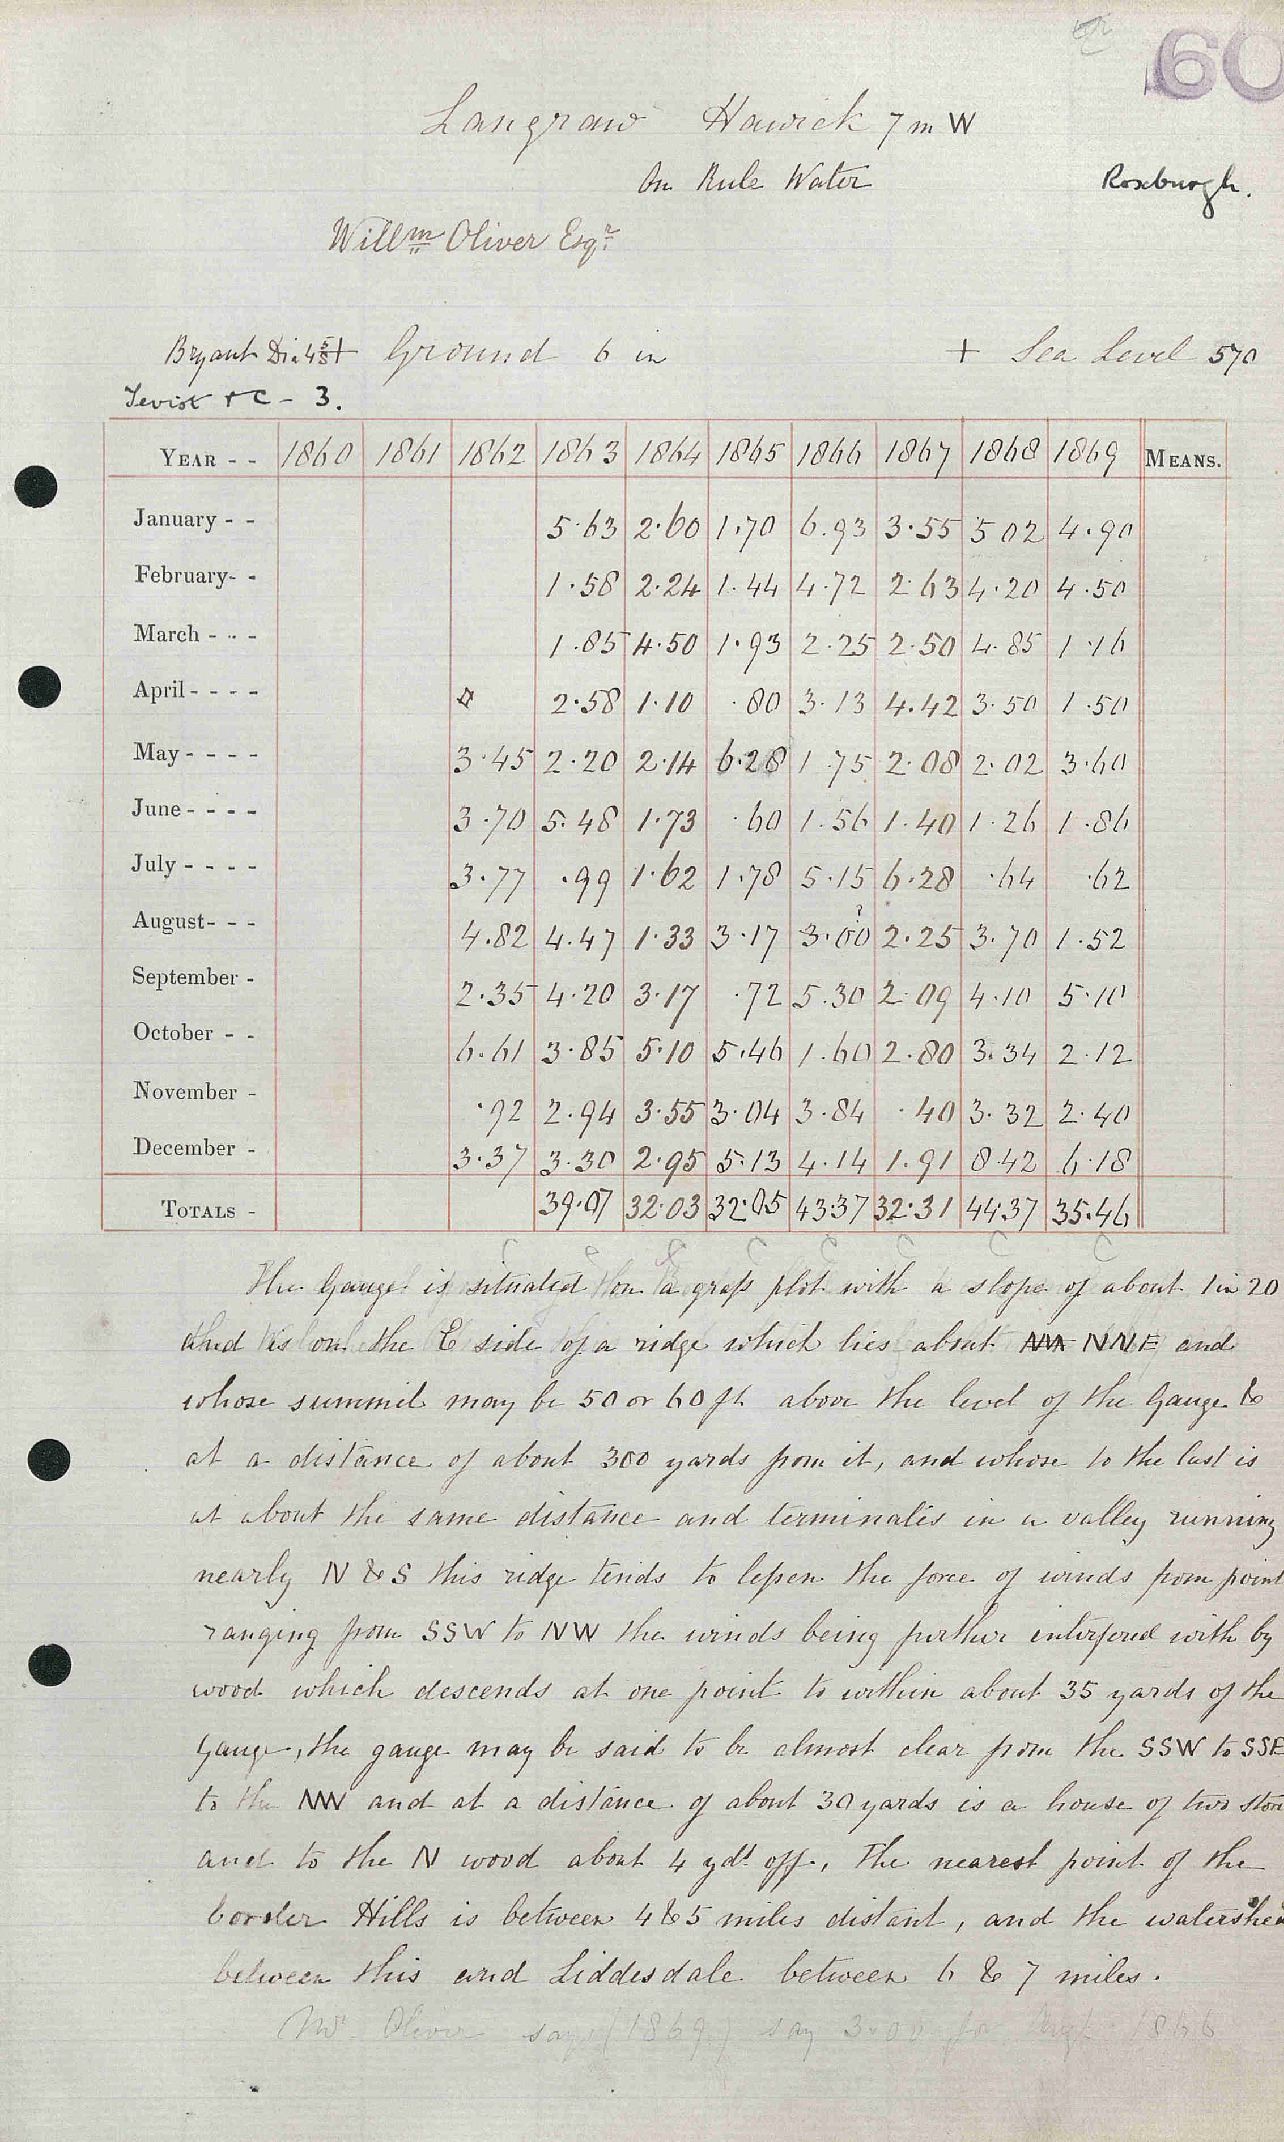 60
Langraw Hawick 7 m W
On Rule Water
Roxburgh.
Willm Oliver Esqr
Bryant Dia 4 5/8 + Ground 6 in + Sea Level 570
Teviot + C - 3.
YEAR - - 1860 1861 1862 1863 1864 1865 1866 1867 1868 1869 MEANS.
January - - 5.63 2.60 1.70 6.93 3.55 5 02 4.90
February- - 1.58 2.24 1.44 4.72 2.63 4.20 4.50
March - - - 1.85 4.50 1.93 2.25 2.50 4.85 1.16
April - - - - 2.58 1.10 .80 3.13 4.42 3.50 1.50
May - - - - 3.45 2.20 2.14 6.28 1 75 2.08 2.02 3.60
June - - - - 3.70 5.48 1.73 .60 1.56 1.40 1.26 1.86
July - - - - 3.77 .99 1.62 1.78 5.15 6.28 .64 .62
August- - - 4.82 4.47 1.33 3.17 3.00 ? 2.25 3.70 1.52
September - 2.35 4.20 3.17 .72 5.30 2.09 4.10 5.10
October - - 6.61 3.85 5.10 5.46 1.60 2.80 3.34 2.12
November - .92 2.94 3.55 3.04 3.84 .40 3.32 2.40
December - 3.37 3.30 2.95 5.13 4.14 1.91 8.42 6.18
TOTALS - 39.07 32.03 32.05 43.37 32.31 44.37 35.46
The Gauge is situated on a grass plot with a slope of about 1 in 20
and is on the E side of a ridge which lies about NNE and
whose summit may be 50 or 60 ft above the level of the Gauge &
at a distance of about 300 yards from it, and whose to the last is
at about the same distance and terminates in a valley running
nearly N & S this ridge tends to lessen the force of winds from point
ranging from SSW to NW the winds being further interfered with by
wood which descends at one point to within about 35 yards of the
Gauge, the gauge may be said to be almost clear from the SSW to SSE
to the NW and at a distance of about 30 yards is a house of two stori
and to the N wood about 4 yds off. The nearest point of the
border Hills is between 4 & 5 miles distant, and the watershed
between this and Liddesdale between 6 & 7 miles.
Mr Oliver says (1869) say 3.00 for Augt 1866